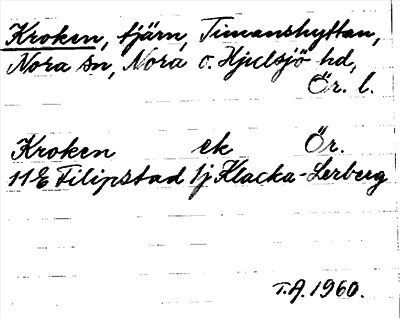 Kroken, tjärn, Timanshyttan,
Nora sn, Nora o. Hjulsjö hd,
Ör. l.
Kroken ek Ör.
11E Filipstad 1j Klacka-Lerberg
T.A. 1960.